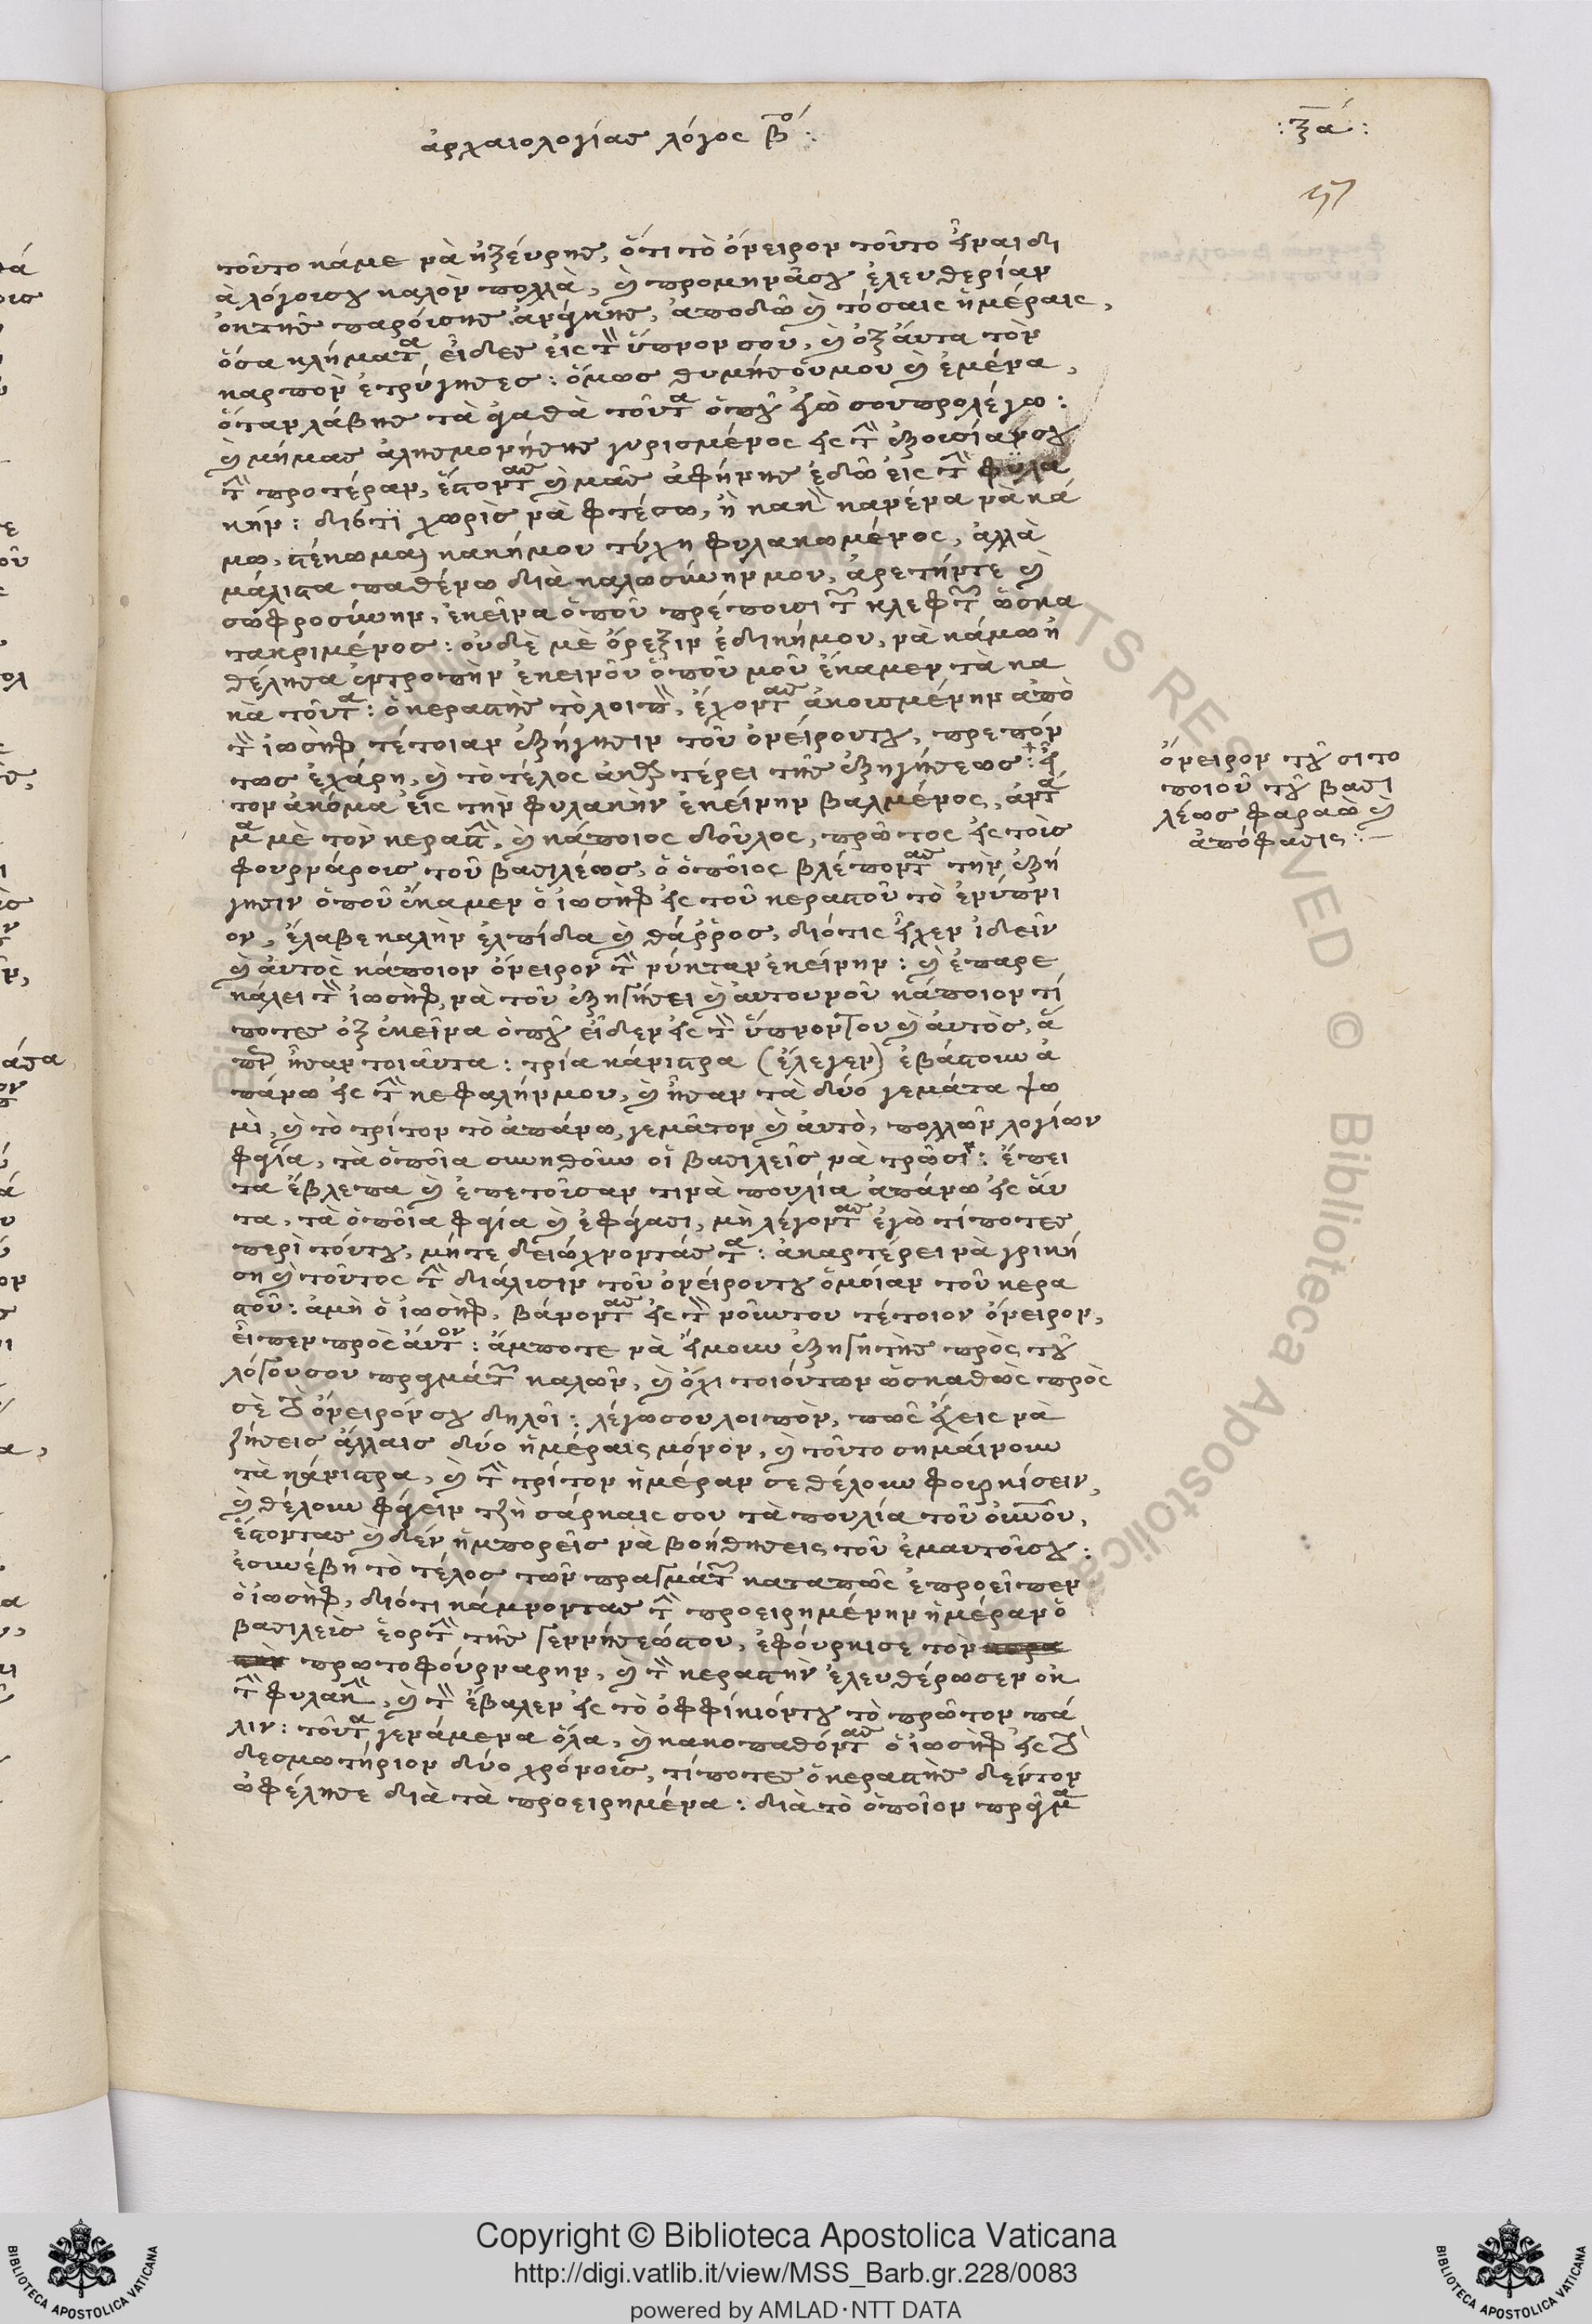 ἀρχαιολογίας λόγος βʹ:
:ξα:
τοῦτο κάμε νὰ ἠξέυρης, ὅτι τὸ ὄνειρον τοῦτο εἶναι δι
ὰ λόγουσου καλὸν πολλὰ, καὶ προμηνᾶσου ἐλευθερίαν
ἐκτῆς παρούσης ἀνάγκης, ἀποδῶ καὶ τόσαις ἡμέραις,
ὅσα κλήματα εἶδες εἰς τὸν ὕπνον σου, καὶ ἐξ ἀυτα τὸν
καρπὸν ἐτρύγησες: ὅμως θυμήσου μου καὶ ἐμένα,
ὅταν λάβης τὰ ἀγαθὰ τοῦτα ὁποῦ ἐγὼ σουπρολέγω:
καὶ μήμας ἀλησμονήσης γυρισμένος εἰς τὴν ἐξουσίανσου
τὴν προτέραν, ἔστοντας καὶ μᾶς ἀφήνης ἐδῶ εἰς τὴν φυλα
κήν: διότι χωρὶς νὰ φτέσω, ἢ κακὸν κανένα νὰ κά
μω, στέκωμαι κακήμου τύχη φυλακωμένος, ἀλλὰ
μάλιστα παθένω διὰ καλωσύνην μου, ἀρετήντε καὶ
σωφροσύνην, ἐκεῖνα ὁποῦ πρέπουσι τῶν κλεφτῶν ὥσκα
τακριμένος: οὐδὲ μὲ ὄρεξιν ἐδικήμου, νὰ κάμω ἠ
θέλησα ἐντροπὴν ἐκεινοῦ ὁποῦ μοῦ ἔκαμεν τὰ κα
κὰ τοῦτα: ὁ κεραστὴς τὸ λοιπὸν, ἔχοντας ἀκουσμένην ἀπὸ
τὸν ἰωσὴφ τέτοιαν ἐξήγησιν τοῦ ὀνείρουτου, πρεπόν
τως ἐχάρη, καὶ τὸ τέλος ἀκαρτέρει τῆς ἐξηγήσεως: ἦ
τον ἀκόμα εἰς τὴν φυλακὴν ἐκείνην βαλμένος, ἀντά
μα μὲ τὸν κεραστὴν, καὶ κάποιος δοῦλος, πρῶτος εἰς τοῖς
φουρνάροις τοῦ βασιλέως, ὁ ὁποῖος βλέποντας τὴν ἐξή
γησιν ὁποῦ ἔκαμεν ὁ ἰωσὴφ εἰς τοῦ κεραστοῦ τὸ ἐνύπνι
ον, ἔλαβε καλὴν ἐλπίδα καὶ θάῤῥος, διότις εἶχεν ἰδεῖν
καὶ ἀυτὸς κάποιον ὄνειρον τὴν νύκταν ἐκείνην: καὶ ἐπαρε
κάλει τὸν ἰωσὴφ, νὰ τοῦ ἐξηγήσει καὶ ἀυτουνοῦ κάποιον τί
ποτες ἐξ ἐκεῖνα ὁποῦ εἶδεν εἰς τὸν ὕπνοντου καὶ ἀυτὸς, ἅ
περ ἦσαν τοιᾶυτα: τρία κάνιστρα (ἔλεγεν) ἐβάστουν ἀ
πάνω εἰς τὴν κεφαλήνμου, καὶ ἦσαν τὰ δύο γεμάτα ψω
μὶ, καὶ τὸ τρίτον τὸ ἀπάνω, γεμᾶτον καὶ ἀυτὸ, πολλῶν λογίων
φαγία, τὰ ὁποῖα συνηθοῦν οἱ βασιλεῖς νὰ τρῶσιν: ἔπει
τα ἔβλεπα καὶ ἐπετοῦσαν τινὰ πουλία ἀπάνω εἰς ἄυ
τα, τὰ ὁποῖα φαγία καὶ ἐφάγασι, μὴ λέγοντας ἐγὼ τίποτες
περὶ τόυτου, μήτε δειώχνοντάς τα: ἀκαρτέρει νὰ γρική
ση καὶ τοῦτος τὴν διάλισιν τοῦ ὀνείρουτου ὁμοίαν τοῦ κερα
στοῦ: ἀμὴ ὁ ἰωσὴφ, βάνοντας εἰς τὸν νοῦντου τέτοιον ὄνειρον,
εἶπεν πρὸς ἀυτὸν: ἄμποτε νὰ ἤμουν ἐξηγητὴς πρὸς τοῦ
λόγουσου πραγμάτων καλῶν, καὶ ὄχι τοιόυτων ὡσκαθὼς πρὸς
σὲ τὸ ὄνειρόνσου δηλοῖ: λέγωσου λοιπὸν, πῶς ἔχεις νὰ
ζήσεις ἄλλαις δύο ἡμέραις μόνον, καὶ τοῦτο σημάινουν
τὰ κάνιστρα, καὶ τὴν τρίτον ἡμέραν σε θέλουν φουρκίσειν,
καὶ θέλουν φάγειν τζὴ σάρκαις σου τὰ πουλία τοῦ οὐνοῦ,
ἔστοντας καὶ δὲν ἠμπορεῖς νὰ βοήθησεις τοῦ ἐμαυτοῦσου:
ἐσυνέβη τὸ τέλος τῶν πραγμάτων καταπῶς ἐπροεῖπεν
ὁ ἰωσὴφ, διότι κάμνοντας τὴν προειρημένην ἡμέραν ὁ
βασιλεὺς ἑορτὴν τῆς γεννήσεώςτου, ἐφούρκισε τὸν κερα
στὴν πρωτοφούρναρην, καὶ τὸν κεραστὴν ἐλευθέρωσεν ἐκ
τὴν φυλακὴν, καὶ τὸν ἔβαλεν εἰς τὸ ὀφφίκιόντου τὸ πρῶτον πά
λιν: τοῦτα γενάμενα ὅλα, καὶ κακοπαθόντας ὁ ἰωσὴφ εἰς τὸ
δεσμωτήριον δύο χρόνοις, τίποτες ὁ κεραστὴς δέντον
ὠφέλησε διὰ τὰ προειρημένα: διὰ τὸ ὁποῖον πρᾶγμα
ὄνειρον τοῦ σιτο
ποιοῦ τοῦ βασι
λέως φαραὼ καὶ
ἀπόφασις:–
Copyright © Biblioteca Apostolica Vaticana
http://digi.vatlib.it/view/MSS_Barb.gr.228/0083
powered by AMLAD·NTT DATA
BIBLIOTECA APOSTOLICA VATICANA
BIBLIOTECA APOSTOLICA VATICANA